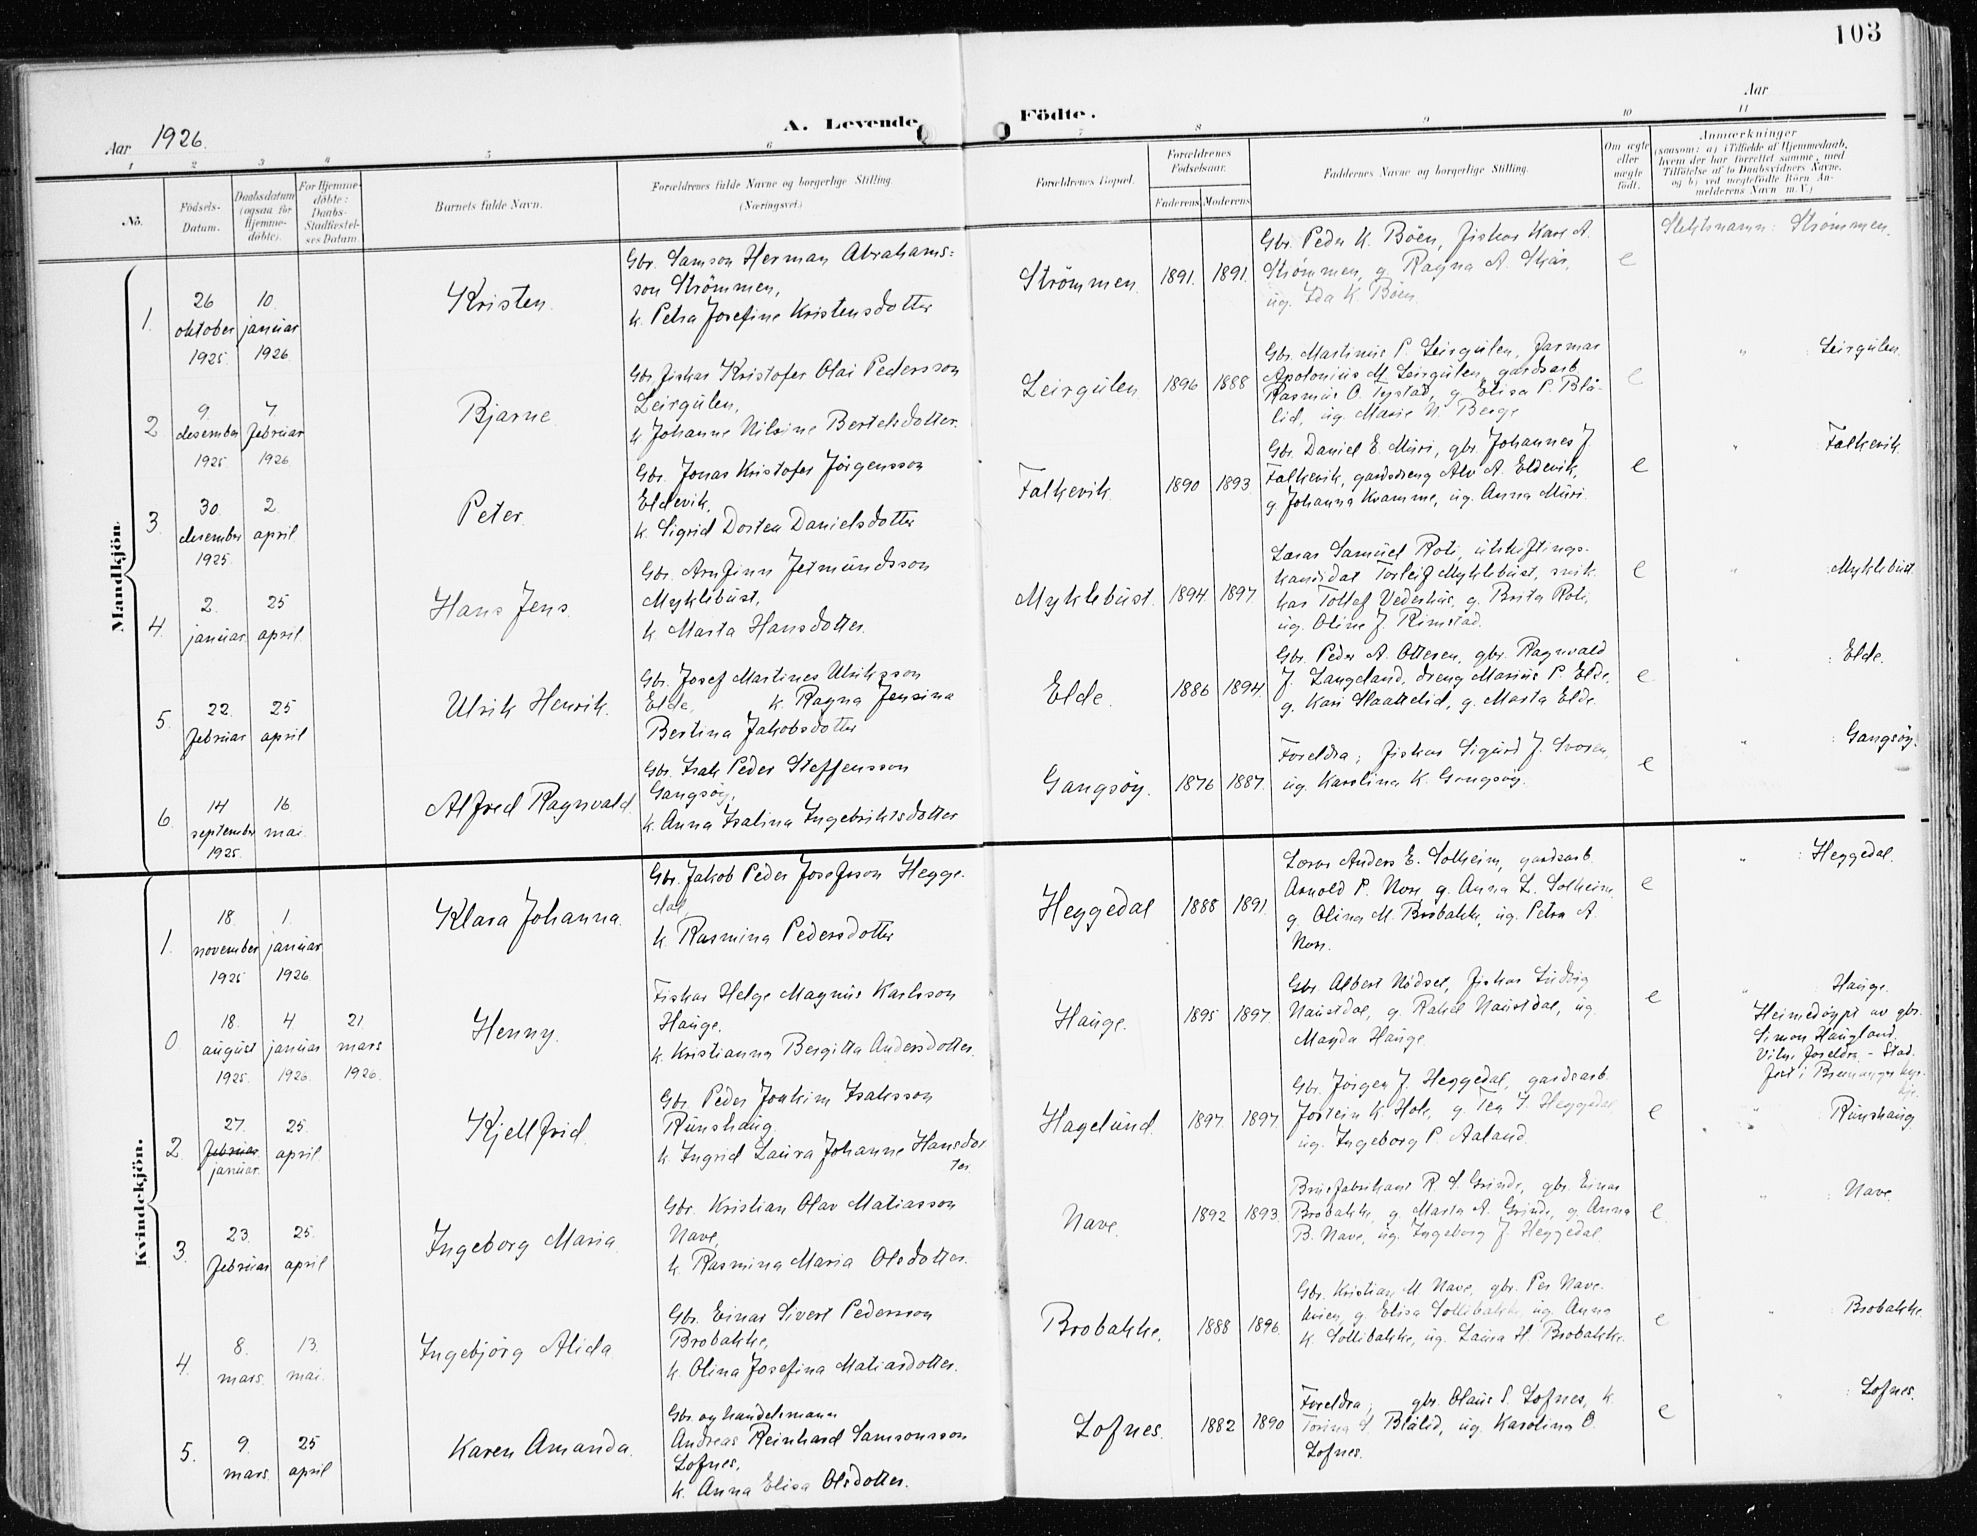 103
Aar 1926.
A. Levende
Födte.
Aar
1 2 3 4 5 6 7 8 9 10 11
No.
Födsels-
Datum.
Daabsdatum
(ogsaa for
Hjemme-
döbte).
For Hjemme-
döbte:
Daabs-
Stadfæstel-
ses Datum.
Barnets fulde Navn.
Forældrenes fulde Navne og borgerlige Stilling.
(Næringsvei.)
Forældrenes Bopæl.
Forældrenes
Fødselsaar.
Faderens Moderens
Faddernes Navne og borgerlige Stilling.
Om ægte
eller
uægte
født.
Anmærkninger
(saasom: a) i Tilfælde af Hjemmedaab,
hvem der har forrettet samme, med
Tilföielse af to Daabsvidners Navne,
og b) ved uægtefödte Börn An-
melderens Navn m. V.)
Mandkjön.
1.
26
oktober
1925
10.
januar
1926
Kristen.
Gbr. Samson Herman Abrahams-
son Strömmen,
k. Petra Josefine Kristensdotter
Strömmen.
1891. 1891.
Gbr. Peder K. Böen, fiskar Kare A.
Strömmen, g. Ragna A. Skår,
ug. Ida K. Böen.
e
Slektsnamn: Strömmen.
2
9.
desember
1925
7.
februar
1926
Bjarne
Gbr. fiskar Kristofer Olai Pedersson
Leirgulen,
k. Johanne Nilsine Bertelsdotter.
Leirgulen
1896 1888
Gbr. Martinus P. Leirgulen, farmar
Apolonius M. Leirgulen, gardsarb.
Rasmus O. Tystad, g. Elisa P. Blå-
lid, ug. Marie N. Berge
e
" : Leirgulen.
3.
30.
desember
1925.
2.
april.
Peter.
Gbr. Jonas Kristofer Jörgensson
Eldevik,
k. Sigrid Dorten Danielsdotter
Falkevik.
1890 1893.
Gbr. Daniel E. Muri, gbr. Johannes J
Falkevik, gardsdreng Alv A. Eldevik,
g. Johanna Kvamme, ug. Anna Muri.
e
" Falkevik.
4.
2.
januar.
25
april
Hans Jens.
Gbr. Arnfinn Jetmundsson
Myklebust,
k. Marta Hansdotter.
Myklebust.
1894. 1897.
Lærar Samuel Roti, utskiftings-
kandidat Torleif Myklebust, snik-
kar Tollef Vederhus, g. Brita Roti,
ug. Oline J. Rimstad.
e
" : Myklebust
5.
22.
februar
25
april
Ulrik Henrik.
Gbr. Josef Martines Ulriksson
Elde, k. Ragna Jensina
Bertina Jakobsdotter
Elde.
1886 1894.
Gbr. Peder A. Ottesen, gbr. Ragnvald
J. Langeland, dreng Marius P. Elde,
g. Kari Slaattelid, g. Marta Elde.
e
" : Elde.
6.
14
september
1925.
16
mai.
Alfred Ragnvald.
Gbr. Isak Peder Steffensson
Gangsöy,
k. Anna Isalina Ingebriktsdotter
Gangsöy.
1876 1887.
Foreldra; fiskar Sigurd J. Svoren,
ug. Karolina K. Gangsöy.
e
" : Gangsöy.
Kvindekjön.
1.
18.
november
1925
1.
januar
1926.
Klara Johanna.
Gbr. Jakob Peder Josefsson Hegge-
dal,
k. Rasmina Pedersdotter
Heggedal
1888 1891.
Lærar Anders E. Solheim, gardsarb.
Arnold P. Nore, g. Anna L. Solheim,
g. Olina M. Brobakke, ug. Petra A.
Nore.
e
" : Heggedal.
0
18.
august
1925.
4.
januar
1926.
21.
mars
1926.
Henny.
Fiskar Helge Magnus Karlsson
Hauge.
k. Kristianna Bergitta Andersdotter.
Hauge.
1895 1897.
Gbr. Albert Nödset, fiskar Ludvig
Naustdal, g. Rakel Naustdal, ug.
Magda Hauge.
e
" : Hauge.
Heimedöypt av gbr.
Simon Haugland.
Vitn. foreldra. - Stad.
fest i Bremanger kyr-
kje.
2.
27.
februar
januar.
25.
april
Kjellfrid.
Gbr. Peder Joakim Isaksson
Runshaug.
k. Ingrid Laura Johanne Hansdot
ter.
Hagelund.
1897. 1897.
Gbr. Jörgen J. Heggedal, gardsarb.
Jostein K. Hole, g. Tea J. Heggedal,
ug. Ingeborg P. Aaland.
e
" : Runshaug
3.
23.
februar
25.
april
Ingeborg Maria.
Gbr. Kristian Olav Matiasson
Nave,
k. Rasmina Maria Olsdotter.
Nave.
1892 1893.
Brusfabrikant R. S. Grinde, gbr. Einar
Brobakke, g. Marta A. Grinde, g. Anna
B. Nave, ug. Ingeborg J. Heggedal.
e.
" : Nave
4.
8.
mars.
13.
mai.
Ingebjörg Alida.
Gbr. Einar Sivert Pedersson
Brobakke,
k. Olina Josefina Matiasdotter.
Brobakke.
1888 1896.
Gbr. Kristian M Nave, gbr. Per Nave-
g. Elisa Sollibakke, ug. Anna
K. Sollibakke, ug. Laura H. Brobakke.
e
" : Brobakke.
5.
9.
mars.
25
april
Karen Amanda.
Gbr. og handelsmann
Andreas Reinhard Samsonsson
Lofnes,
k. Anna Elisa Olsdotter.
Lofnes.
1882 1890
Foreldra; gbr. Olaus S. Lofnes, k.
Torina S. Blålid, ug. Karolina O.
Lofnes.
e
" : Lofnes.